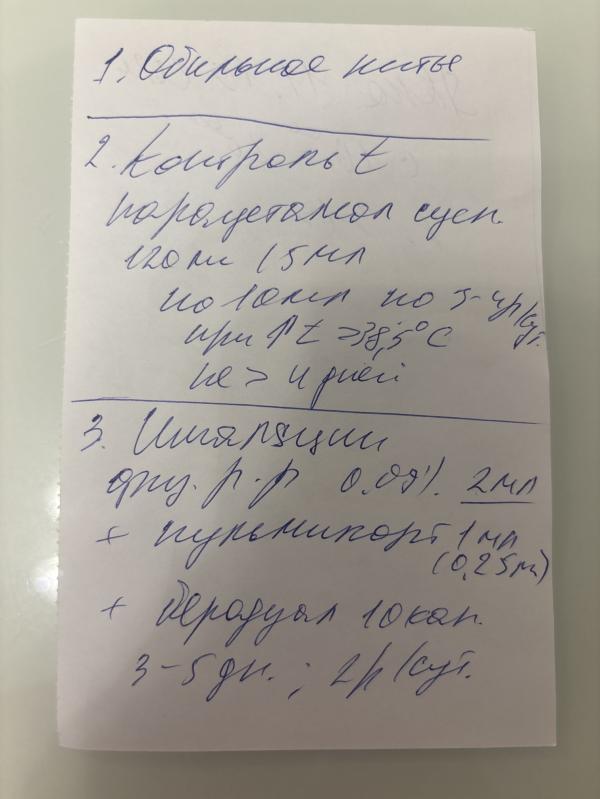 1. Обильное питье
2. Контроль t
парацетамол сусп.
120 мг / 5 мл
по 10 мл по 3-4р/сут.
при ↑t >38,5°С
не > 4 дней
3. Ингаляции
физ. р-р 0.09%. 2 мл
+ пульмикорт 1 мл
(0,25 мг)
+ беродуал 10 кап.
3-5 дн.; 2р/сут.